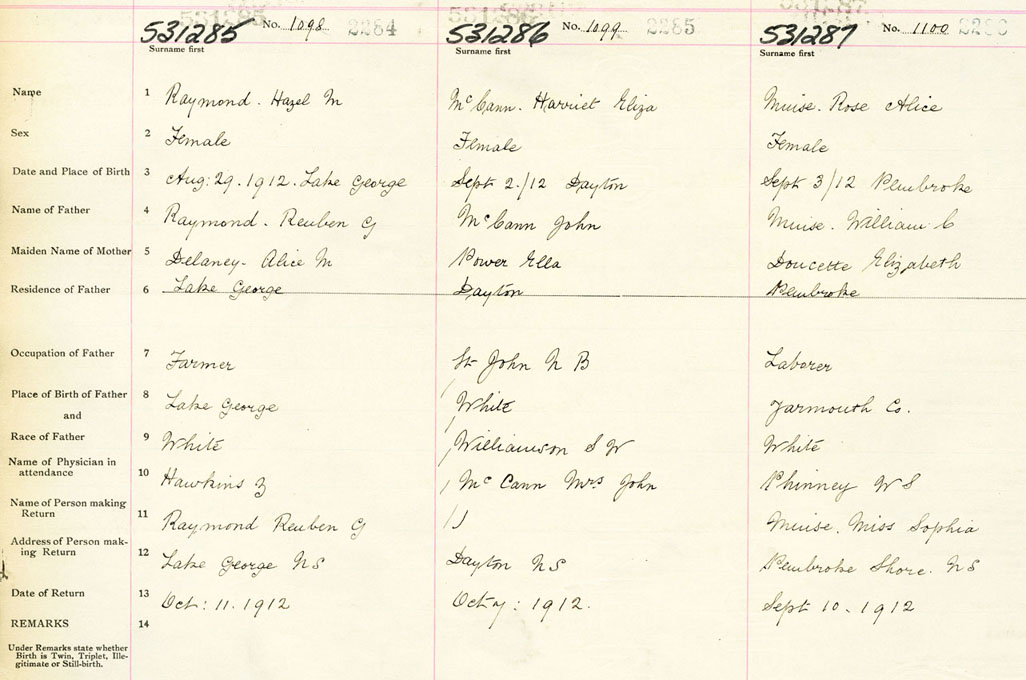 531285 No. 1098 2284 531286 No. 1099 2285 531287 No. 1100
Surname first Surname first Surname first
Name 1 Raymond. Hazel M McCann. Harriet Eliza Muise. Rose Alice
Sex 2 Female Female Female
Date and Place of Birth 3 Aug: 29. 1912. Lake George Sept 2./12 Dayton Sept 3/12 Pembroke
Name of Father 4 Raymond. Reuben G McCann John Muise. William C
Maiden Name of Mother 5 Delaney- Alice M Power Ella Doucette Elizabeth
Residence of Father 6 Lake George Dayton Pembroke
Occupation of Father 7 Farmer St John N B Laborer
Place of Birth of Father 8 Lake George White Yarmouth Co.
and
Race of Father 9 White Williamson S W White
Name of Physician in
attendance 10 Hawkins Z McCann Mrs John Phinney W S
Name of Person making
Return 11 Raymond Reuben G Muise. Miss Sophia
Address of Person mak-
ing Return 12 Lake George NS Dayton NS Pembroke Shore. NS
Date of Return 13 Oct: 11. 1912 Oct 7: 1912. Sept 10. 1912
REMARKS 14
Under Remarks state whether
Birth is Twin, Triplet, Ille-
gitimate or Still-birth.